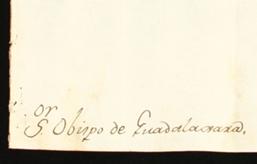 Sor Obispo de Guadalaxara.